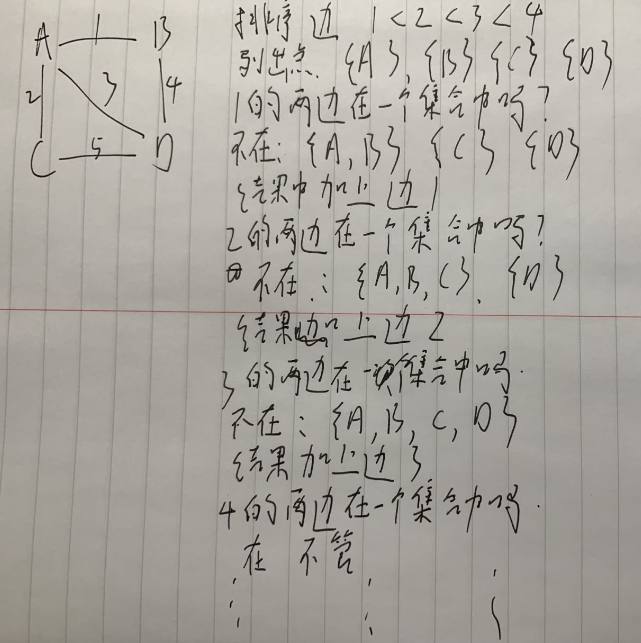 A 1 B
2 3 4
C 5 D
排序边 1<2<3<4
列出点. {A}, {B} {C} {D}
1的两边在一个集合中吗?
不在: {A,B} {C} {D}
结果中加上边1
2的两边在一个集合中吗?
不在: {A,B,C}, {D}
结果加上边2
3的两边在一个集合中吗.
不在: {A,B,C,D}
结果加上边3
4的两边在一个集合中吗.
在 不管.